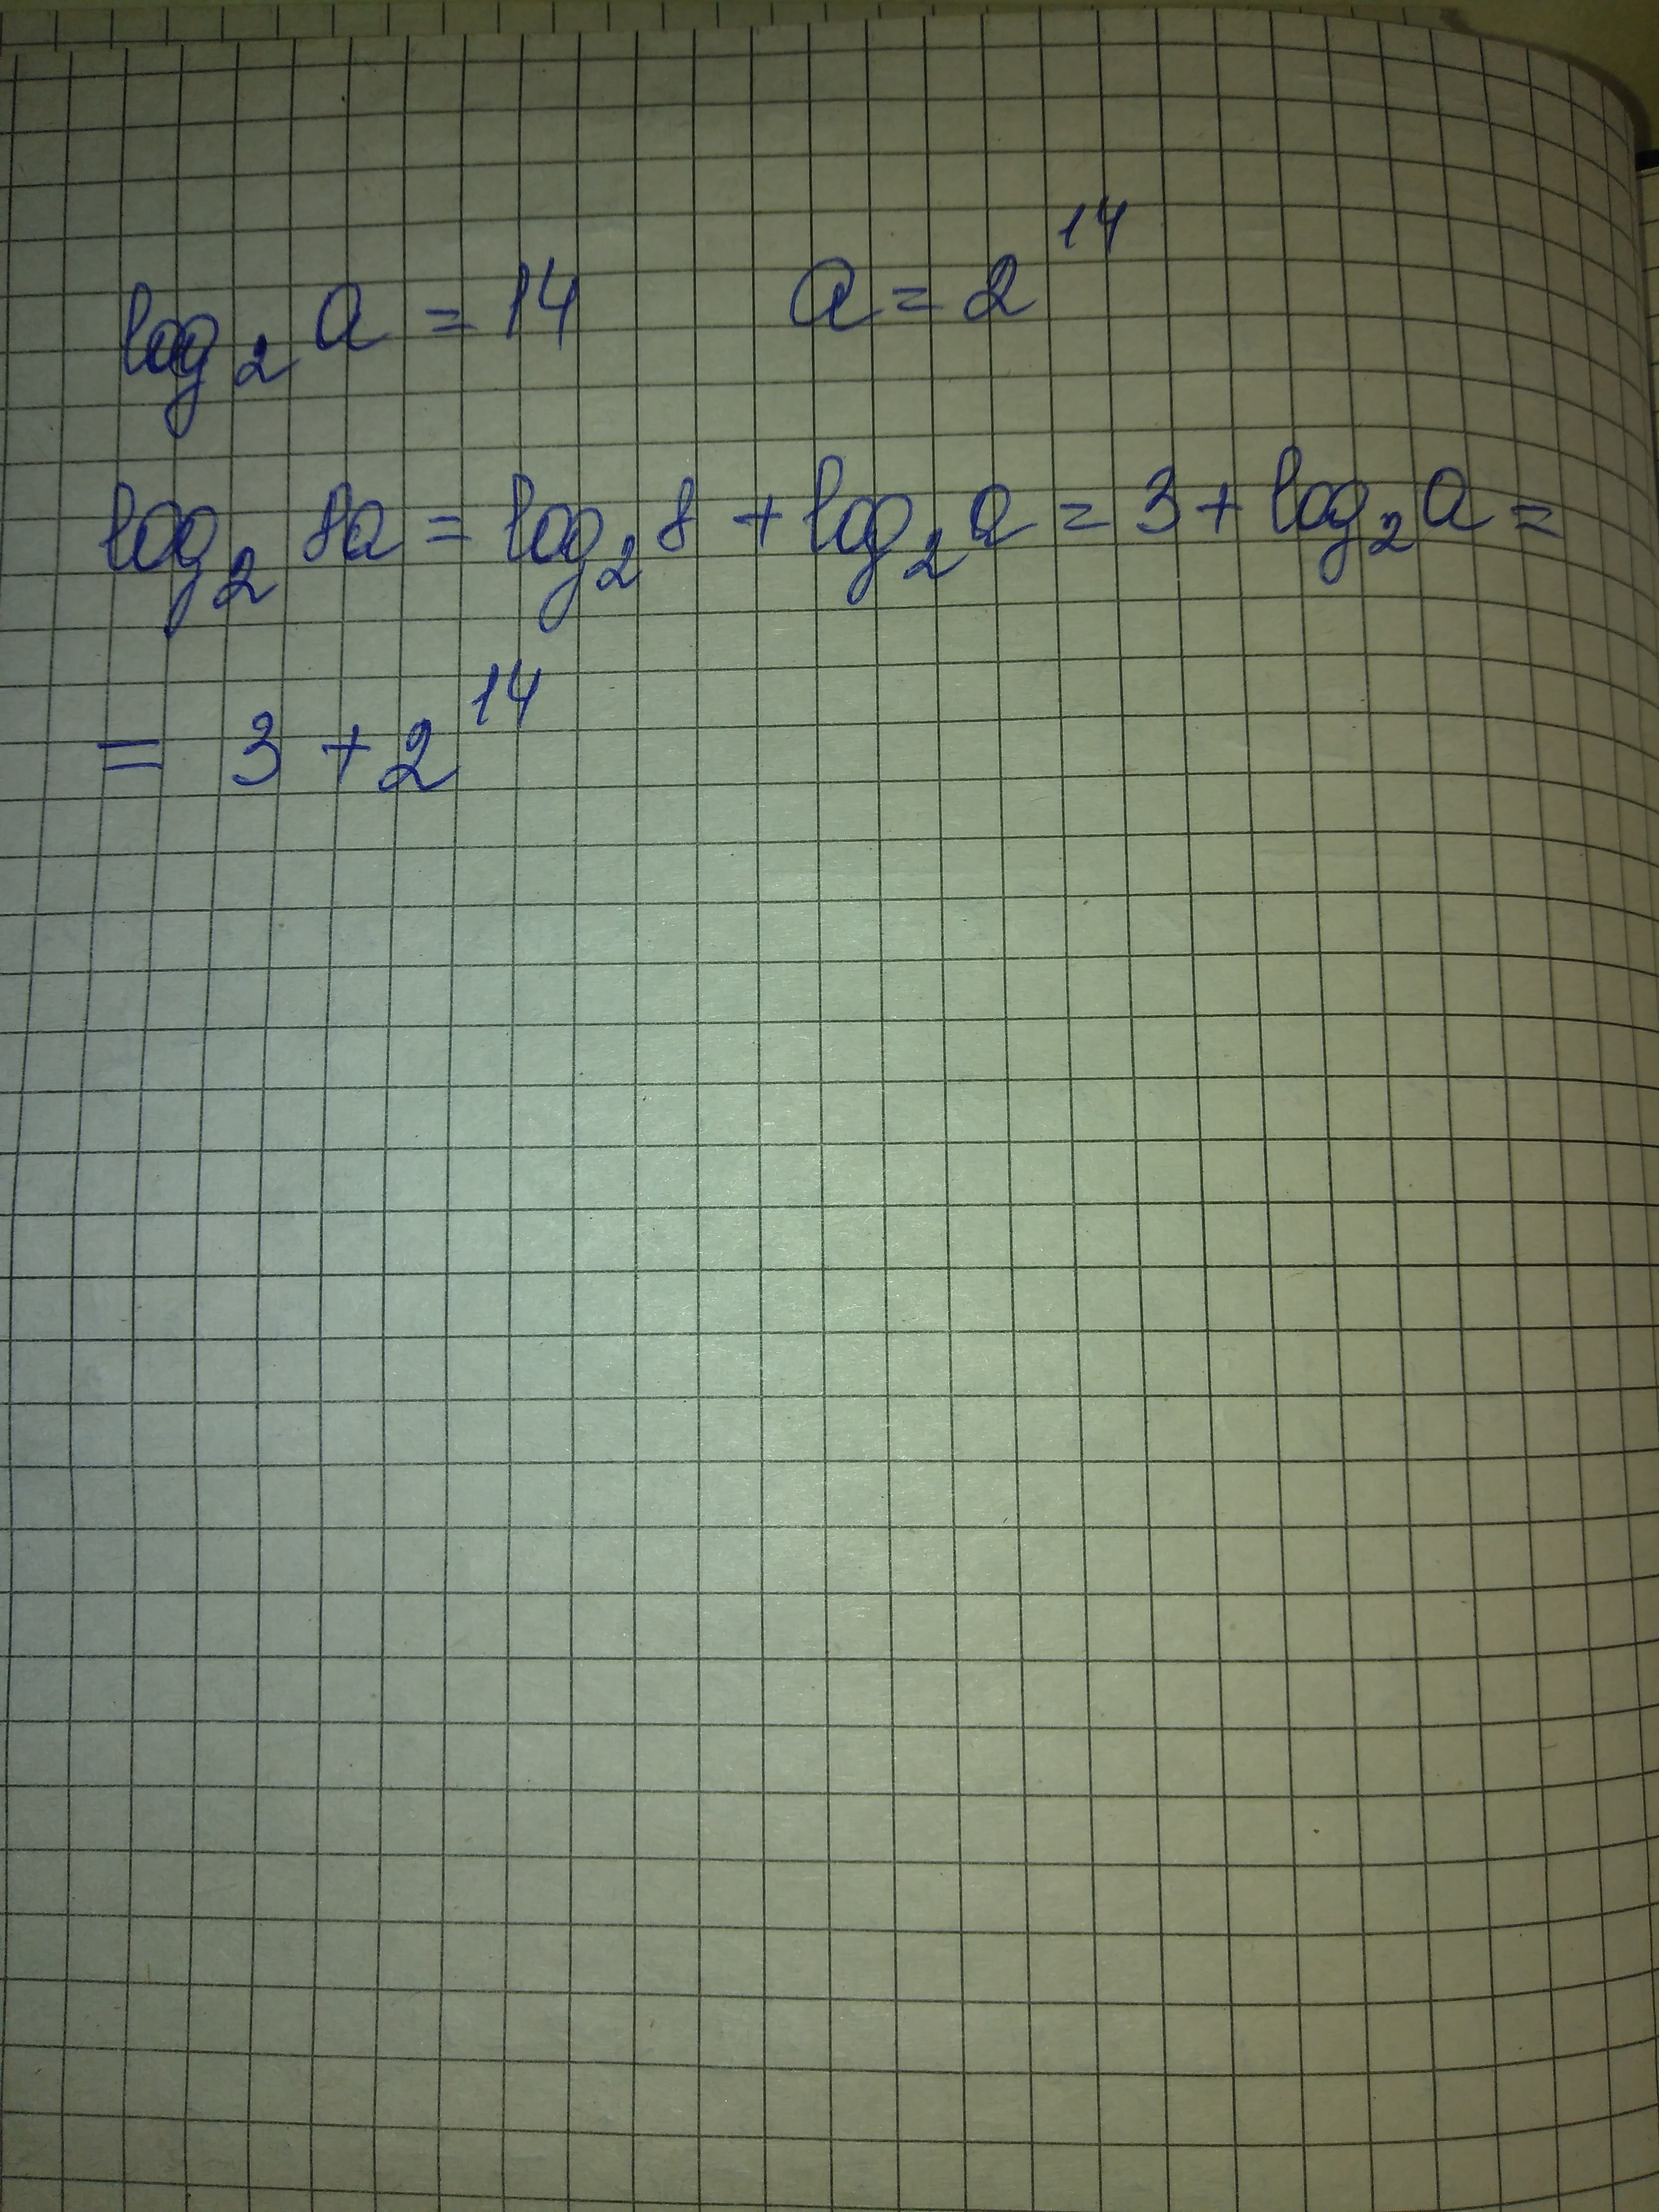 log₂ a = 14 a = 2¹⁴
log₂ 8a = log₂ 8 + log₂ a = 3 + log₂ a =
= 3 + 2¹⁴